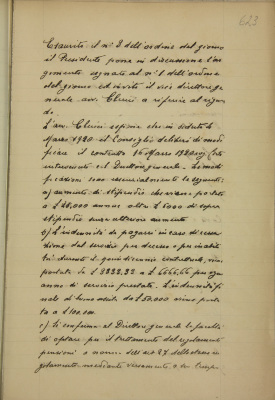 623
Esaurito il n° 3 dell'ordine del giorno
il Presidente pone in discussione l'ar
gomento segnato al n° 1 dell'ordine
del giorno ed invita il vice direttore ge
nerale avv. a riferire al riguar
do.
L'avv. espone che in seduta
Marzo 1920 il Consiglio deliberò di modi
ficare il contratto 16 Marzo
col Direttore generale. Le modi
ficazioni sono essenzialmente le seguenti:
a) aumento di stipendio che viene portato
a £ annue oltre £ 6000 di super
stipendio senza ulteriore aumento
b) L'indennità da pagarsi in caso di cessa
zione dal servizio per decesso o per inabili
tà durante il quindicennio contrattuale, vien
portata da £ 3333,33 a £ 6666,66 per ogni
anno di servizio prestato. L'indennità fi
nale di buona uscita da £ 50.000 viene porta
ta a £ 100.000
c) si conferma al Direttore generale la facoltà
di optare per il trattamento del regolamento
pensioni a norma dell'art 27 dello stesso re
golamento, mediante versamento, a suo